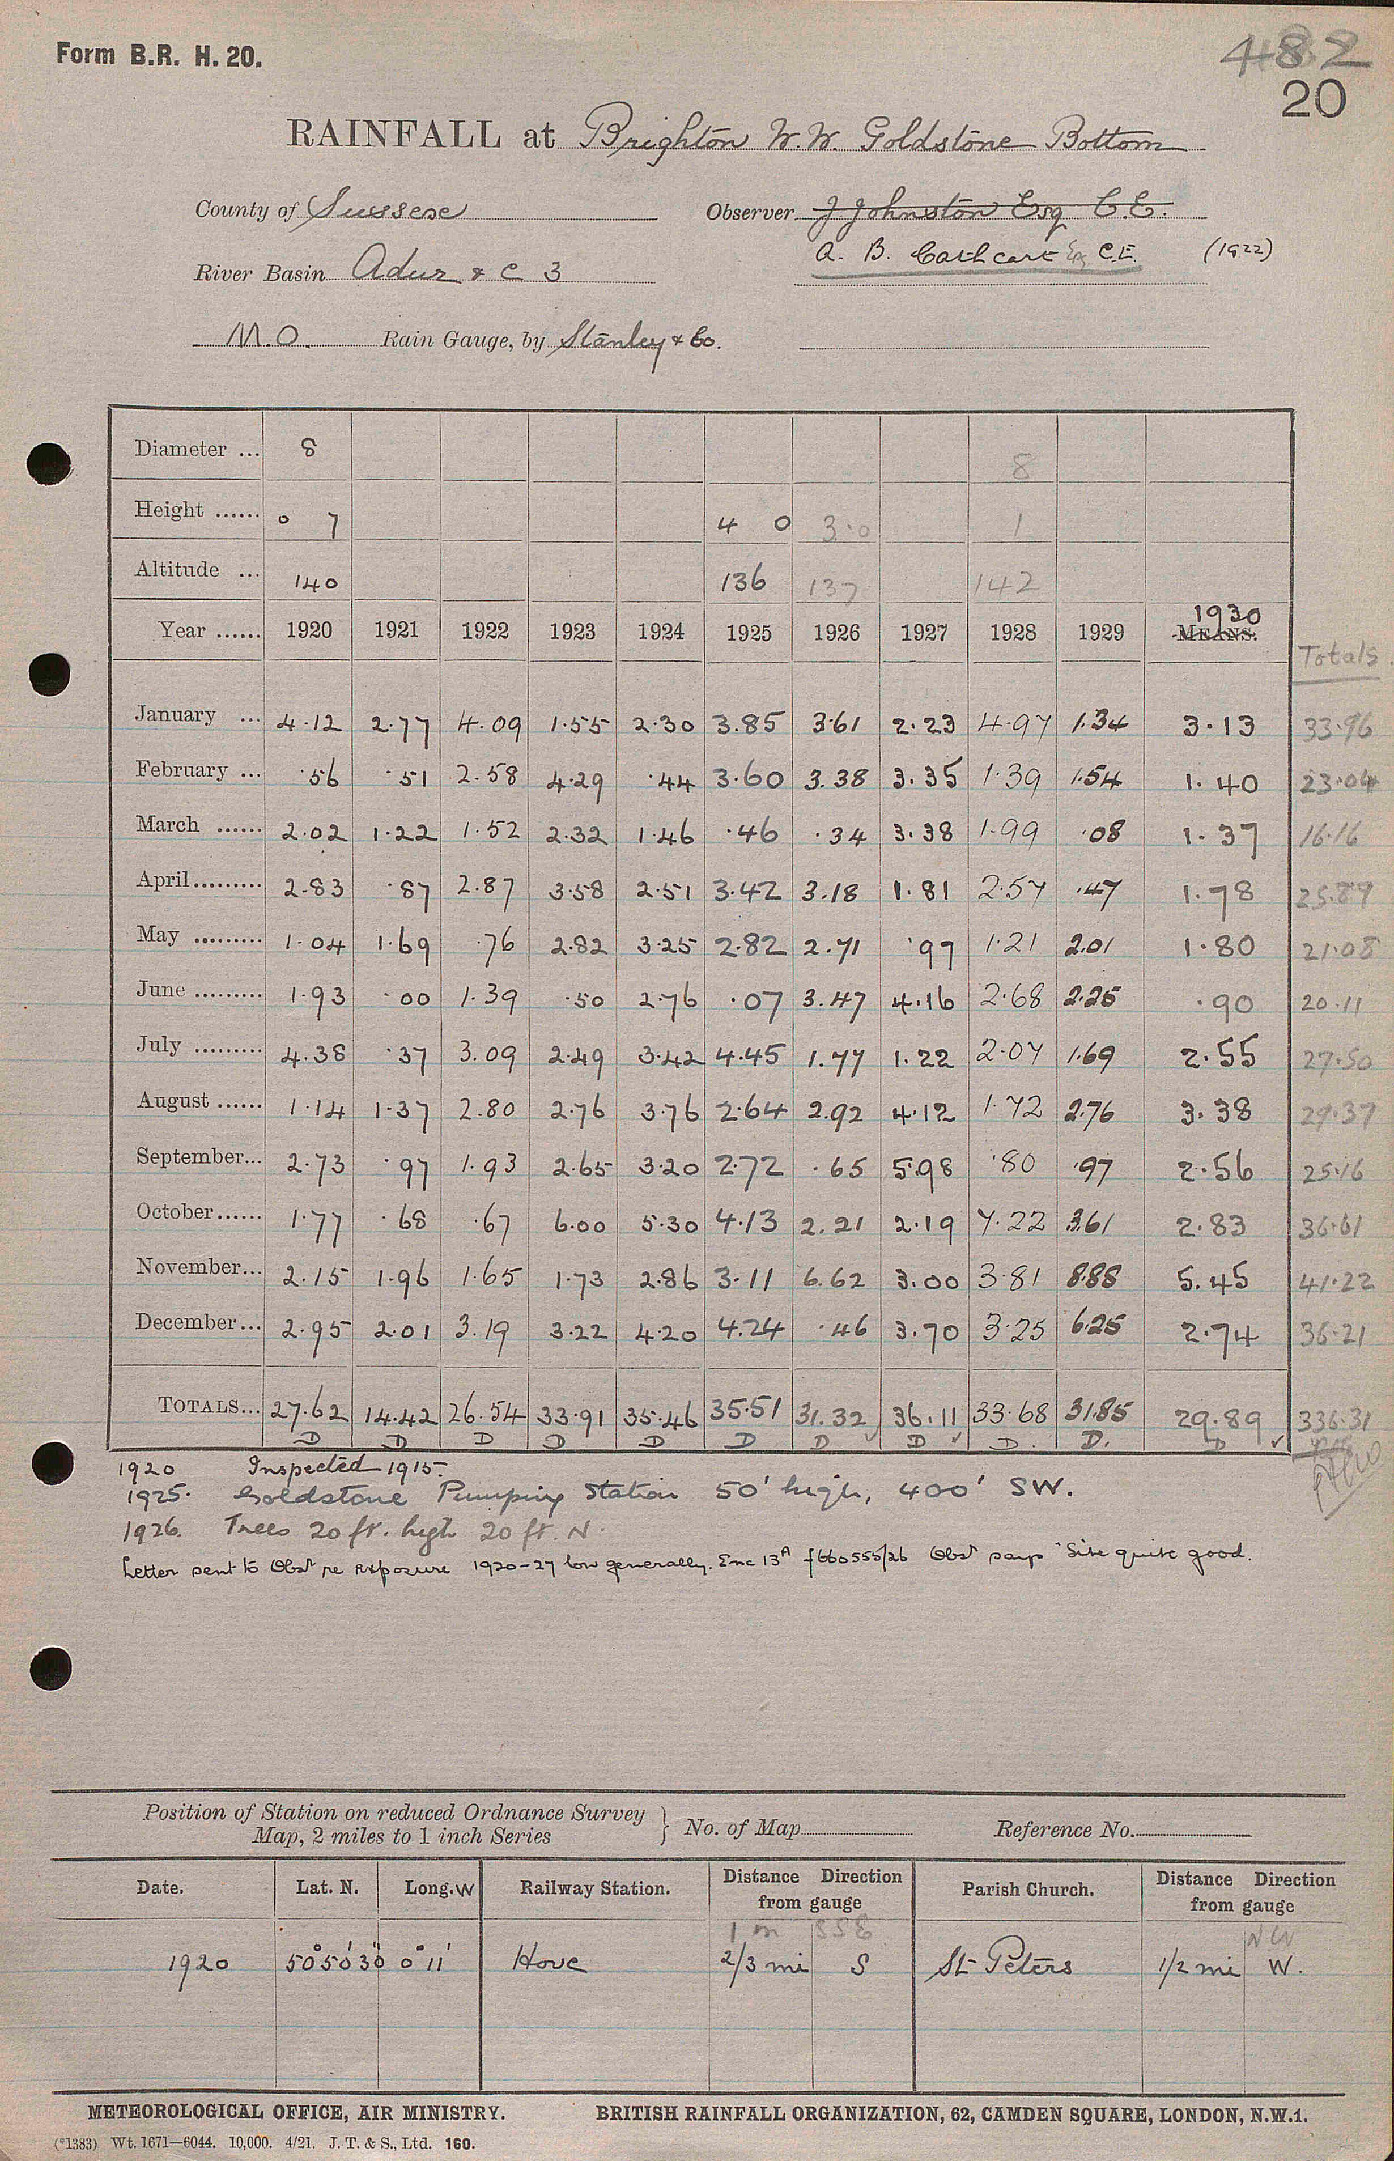 Form B.R. H. 20.
482
20
RAINFALL at Brighton W.W. Goldstone Bottom
County of Sussex Observer J Johnston Esq C.E.
River Basin Adur & C 3 A. B. Cathcart Esq C.E. (1922)
M.O. Rain Gauge, by Stanley & Co.
Diameter ... 8 8
Height ...... 0 7 4 0 3.0 1
Altitude ... 140 136 137 142
Year ...... 1920 1921 1922 1923 1924 1925 1926 1927 1928 1929 MEANS. 1930 Totals
January ... 4.12 2.77 4.09 1.55 2.30 3.85 3.61 2.23 4.97 1.34 3.13 33.96
February ... .56 .51 2.58 4.29 .44 3.60 3.38 3.35 1.39 1.54 1.40 23.04
March ...... 2.02 1.22 1.52 2.32 1.46 .46 .34 3.38 1.99 .08 1.37 16.16
April......... 2.83 .87 2.87 3.58 2.51 3.42 3.18 1.81 2.57 .47 1.78 25.89
May ......... 1.04 1.69 .76 2.82 3.25 2.82 2.71 .97 1.21 2.01 1.80 21.08
June ......... 1.93 .00 1.39 .50 2.76 .07 3.47 4.16 2.68 2.25 .90 20.11
July ......... 4.38 .37 3.09 2.49 3.42 4.45 1.77 1.22 2.07 1.69 2.55 27.50
August ...... 1.14 1.37 2.80 2.76 3.76 2.64 2.92 4.12 1.72 2.76 3.38 29.37
September... 2.73 .97 1.93 2.65 3.20 2.72 .65 5.98 .80 .97 2.56 25.16
October...... 1.77 .68 .67 6.00 5.30 4.13 2.21 2.19 7.22 3.61 2.83 36.61
November... 2.15 1.96 1.65 1.73 2.86 3.11 6.62 3.00 3.81 8.88 5.45 41.22
December... 2.95 2.01 3.19 3.22 4.20 4.24 .46 3.70 3.25 6.25 2.74 36.21
TOTALS... 27.62 14.42 26.54 33.91 35.46 35.51 31.32 36.11 33.68 31.85 29.89 336.31
D D D D D D D D D. D. D
1920 Inspected 1915.
1925. Goldstone Pumping Station 50' high, 400' SW.
1926. Trees 20 ft. high 20 ft. N
Letter sent to Obsr re exposure 1920-27 low generally. Enc 13A f660555/26 Obsr says "Site quite good.
Position of Station on reduced Ordnance Survey Map, 2 miles to 1 inch Series } No. of Map Reference No.
Date. Lat. N. Long. W Railway Station. Distance Direction from gauge Parish Church. Distance Direction from gauge
1 m SSE NW
1920 50° 50' 30" 0° 11' Hove 2/3 mi S St Peters 1/2 mi W.
METEOROLOGICAL OFFICE, AIR MINISTRY. BRITISH RAINFALL ORGANIZATION, 62, CAMDEN SQUARE, LONDON, N.W.1.
(*1383) Wt. 1671—6044. 10,000. 4/21. J. T. & S., Ltd. 160.